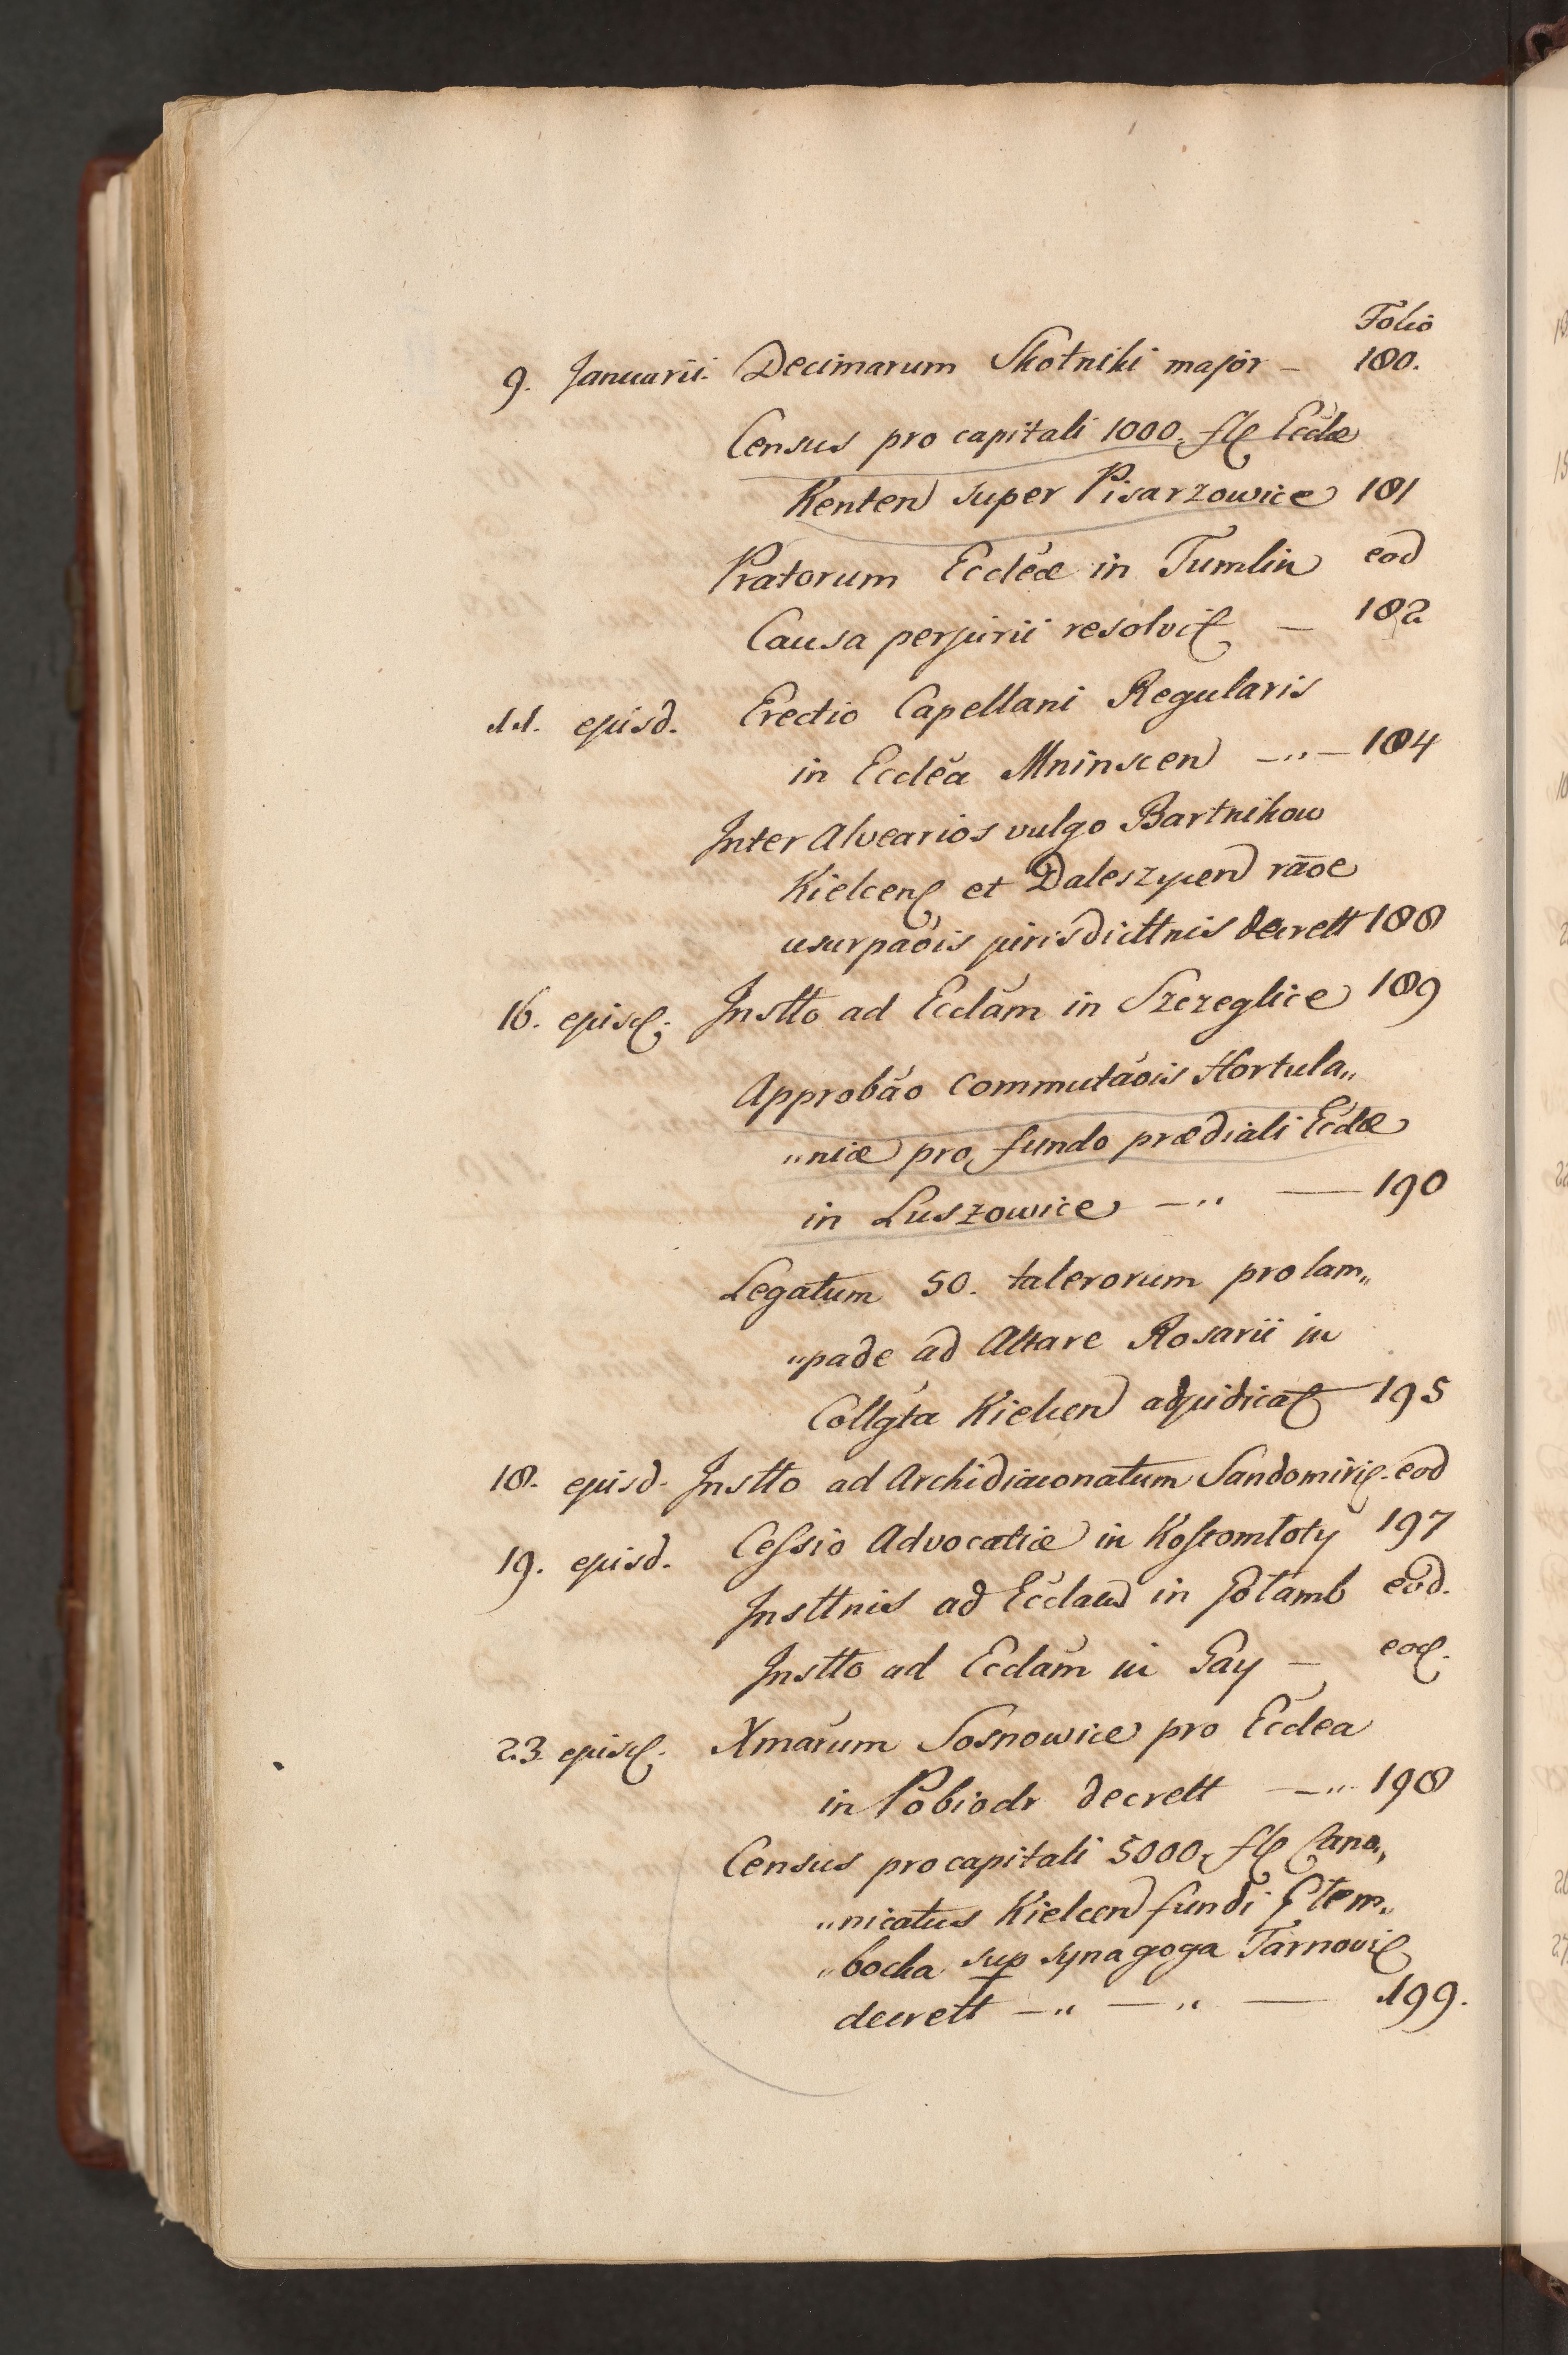 Folio
9. Januarii. Decimarum Skotniki major – 180.
Census pro capitali 1000. fl Ecclæ
Kenten super Pisarzowice 181
Pratorum Eccleæ in Tumlin eod
Causa perjurii resolvit — 182
11. ejusd. Erectio Capellani Regularis
in Ecclea Mninscen —„— 184
Inter Alvearios vulgo Bartnikow
Kielcen et Daleszycen rāoe
usurpaõis jurisdicttnis decrett 188
16. ejusd. Instto ad Ecclam in Szczeglice 189
Approbão Commutaõis Hortula„
„niæ pro fundo prædiali Ecclæ
in Luszowice —„ — 190
Legatum 50. talerorum pro lam„
„pade ad Altare Rosarii in
Collgta Kielcen adjudicat 195
18. ejusd. Instto ad Archidiaconatum Sandomiri. eod
19. ejusd. Cessio Advocatiæ in Kostomłoty 197
Insttnis ad Ecclam in Gołamb eod.
Instto ad Ecclam in Gay — eod.
23 ejusd. Xmarum Sosnowice pro Ecclea
in Pobiedr decrett —„ 198
Census pro capitali 5000. fl Cano„
„nicatus Kielcen fundi Stem„
„bocka sup synagoga Tarnovi
decrett —„ —„ — 199.